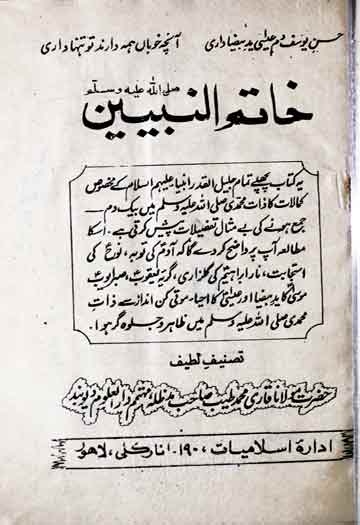 حسنِ یوسف دمِ عیسیٰ یدِ بیضا داری آنچہ خوباں ہمہ دارند تو تنہا داری
صلی اللہ علیہ وسلم
خاتم النبیین
یہ کتاب پچھلے تمام جلیل القدر انبیاء علیہم السلام کے مخصوص
کمالات کا ذات محمدی صلی اللہ علیہ وسلم میں بیک دم
جمع ہونے کی بے مثال تفصیلات پیش کرتی ہے۔ اس کا
مطالعہ آپ پر واضح کر دے گا کہ آدمؑ کی توبہ، نوحؑ کی
استجابت، نارِ ابراہیمؑ کی گلزاری، گریۂ یعقوبؑ، صبرِ ایوبؑ
موسیٰؑ کا یدِ بیضا اور عیسیٰؑ کا احیاء موتیٰ کس انداز سے ذاتِ
محمدی صلی اللہ علیہ وسلم میں ظاہر و جلوہ گر ہوا۔
تصنیفِ لطیف
حضرت مولانا قاری محمد طیب صاحب مدظلہٗ مہتمم دارالعلوم دیوبند
ادارۂ اسلامیات ۱۹۰۔ انارکلی، لاہور